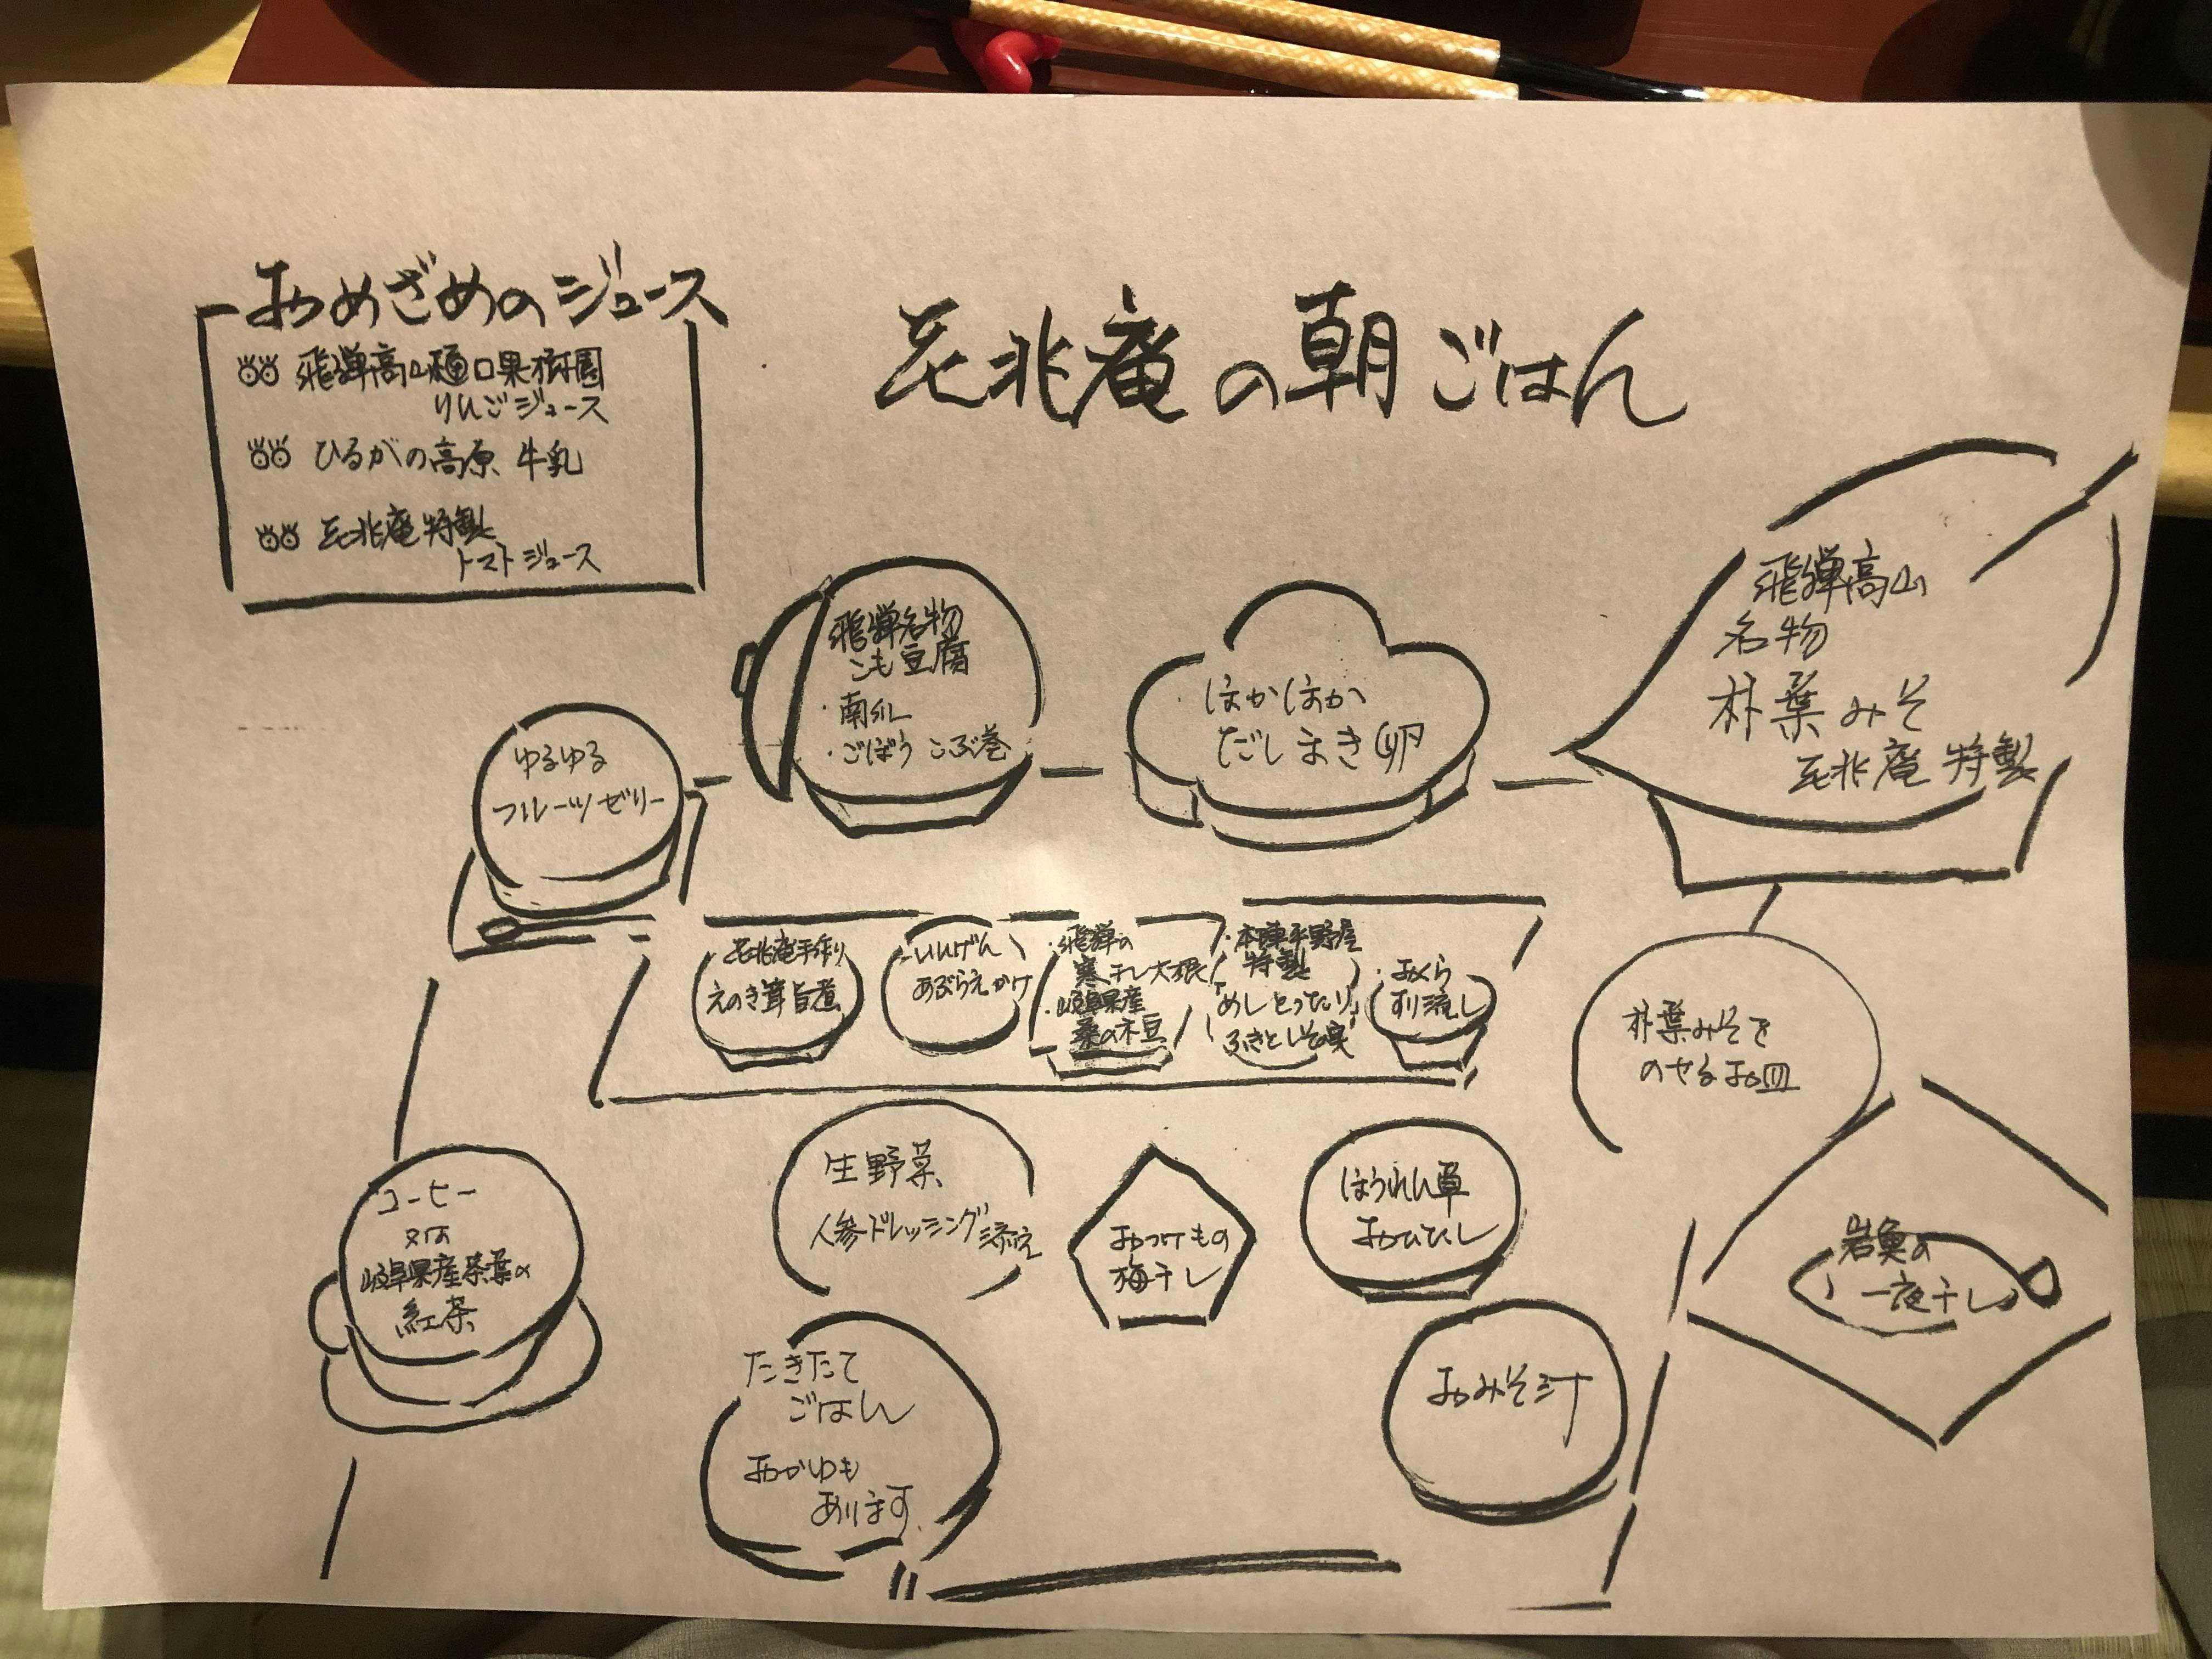 おめざめのジュース
飛騨高山樋口果樹園
りんごジュース
ひるがの高原 牛乳
花兆庵特製
トマトジュース
花兆庵の朝ごはん
ゆるゆる
フルーツゼリー
飛騨名物
こも豆腐
・南瓜
・ごぼうこぶ巻
ほかほか
だしまき卵
飛騨高山
名物
朴葉みそ
花兆庵 特製
・花兆庵手作り
えのき茸旨煮
・いんげん
あぶらえかけ
・飛騨の
寒干し大根
・岐阜県産
桑の木豆
・本陣平野屋
特製
「めしとったり」
ふきとしその実
・おくら
すり流し
朴葉みそを
のせるお皿
コーヒー
又は
岐阜県産茶葉の
紅茶
生野菜
人参ドレッシング添え
おつけもの
梅干し
ほうれん草
おひたし
岩魚の
一夜干し
たきたて
ごはん
おかゆも
あります。
おみそ汁